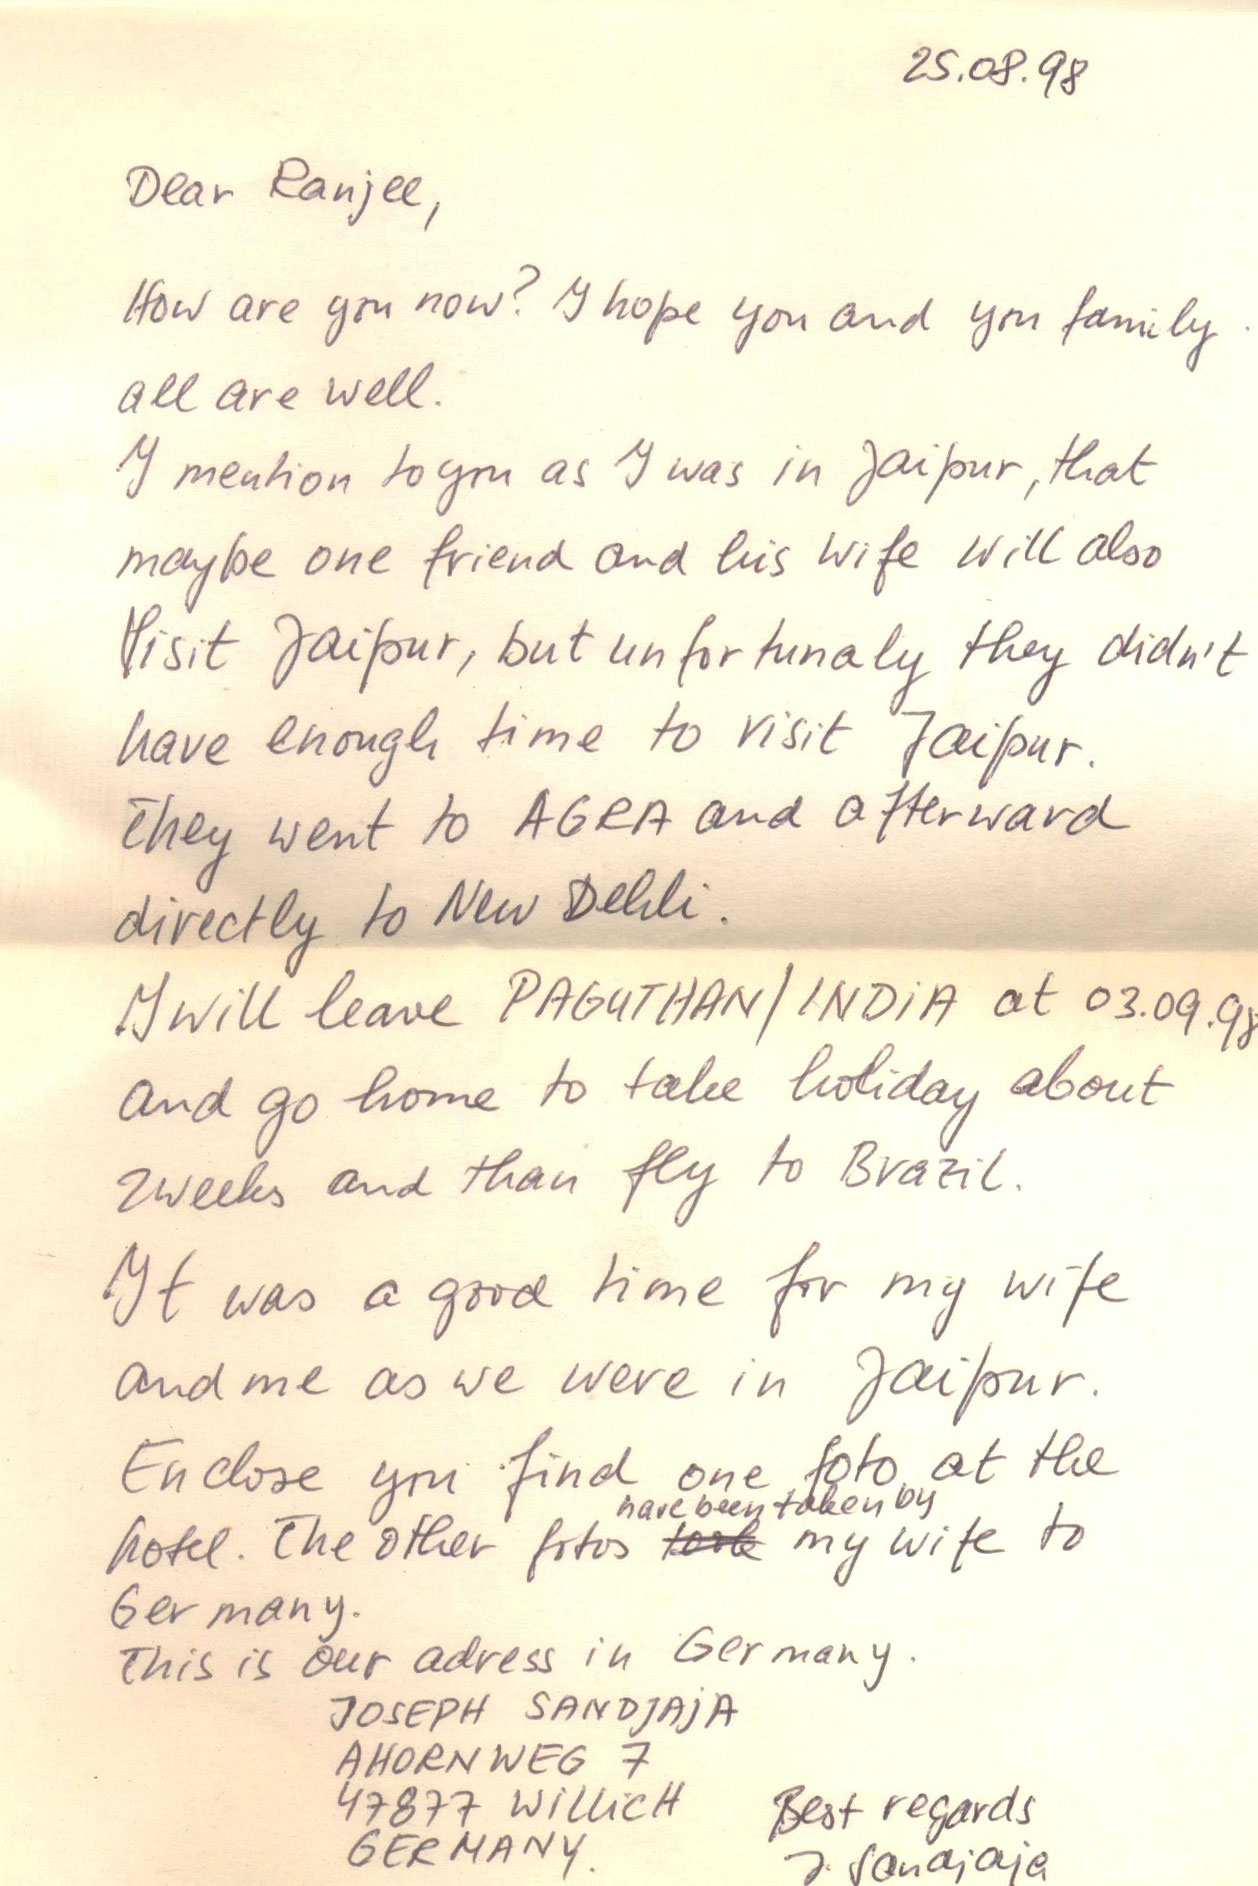 25.08.98
Dear Ranjee,
How are you now? I hope you and you family
all are well.
I mention to you as I was in Jaipur, that
maybe one friend and his wife will also
Visit Jaipur, but unfortunaly they didn't
have enough time to visit Jaipur.
They went to AGRA and afterward
directly to New Dehli.
I will leave PAGUTHAN/INDIA at 03.09.98
and go home to take holiday about
2weeks and than fly to Brazil.
It was a good time for my wife
and me as we were in Jaipur.
Enclose you find one foto at the
have been taken by
hotel. The other fotos took my wife to
Germany.
This is our adress in Germany.
JOSEPH SANDJAJA
AHORNWEG 7
47877 WILLICH
GERMANY.
Best regards
J. Sandjaja